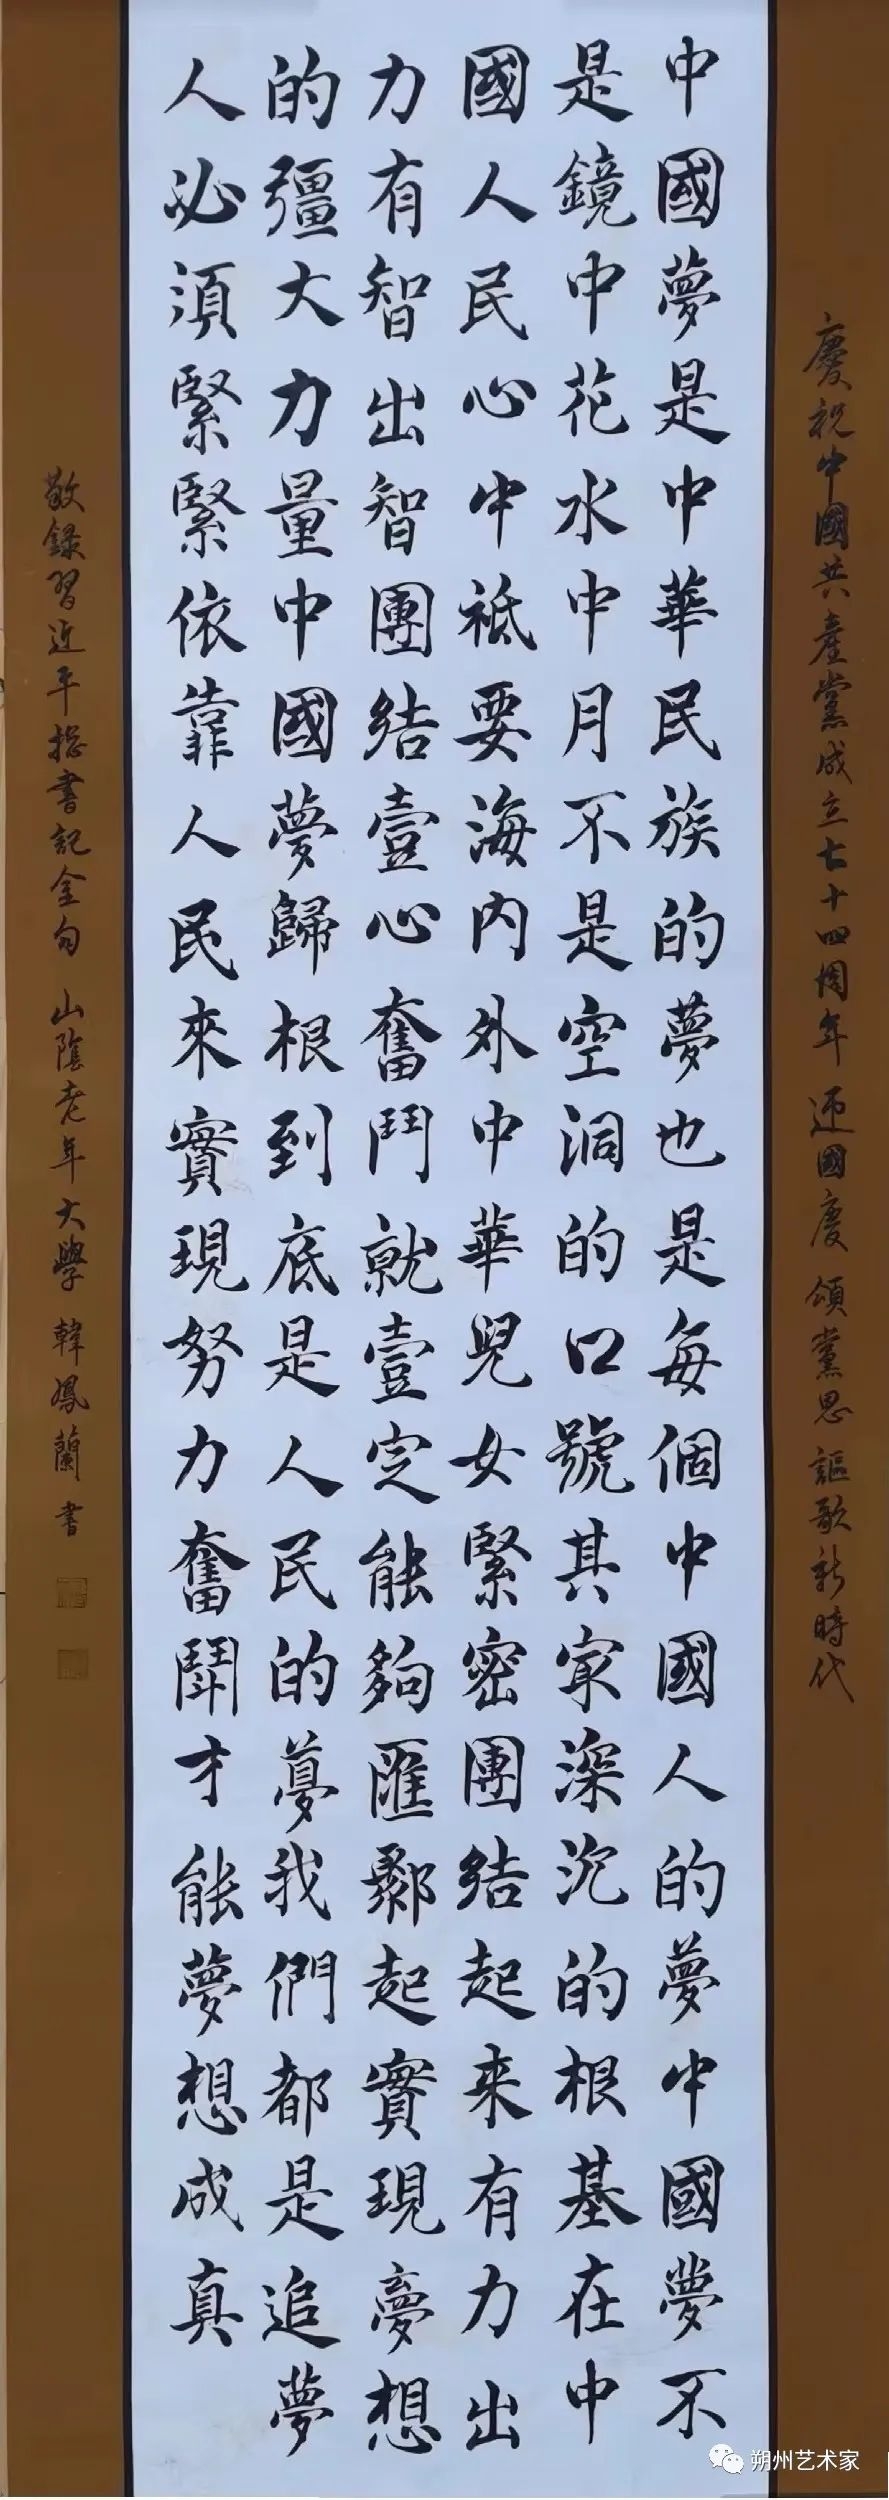 慶祝中國共產黨成立七十四周年 迎國慶 頌黨恩 謳歌新時代
中國夢是中華民族的夢也是每個中國人的夢中國夢不
是鏡中花水中月不是空洞的口號其冣深沉的根基在中
國人民心中祗要海内外中華兒女緊密團結起来有力出
力有智出智團結壹心奮鬥就壹定能夠匯鄹起實現夢想
的彊大力量中國夢歸根到底是人民的夢我們都是追夢
人必須緊緊依靠人民來實現努力奮鬭才能夢想成真
敬録習近平総書記金句 山陰老年大學 韓鳳蘭書
朔州艺术家